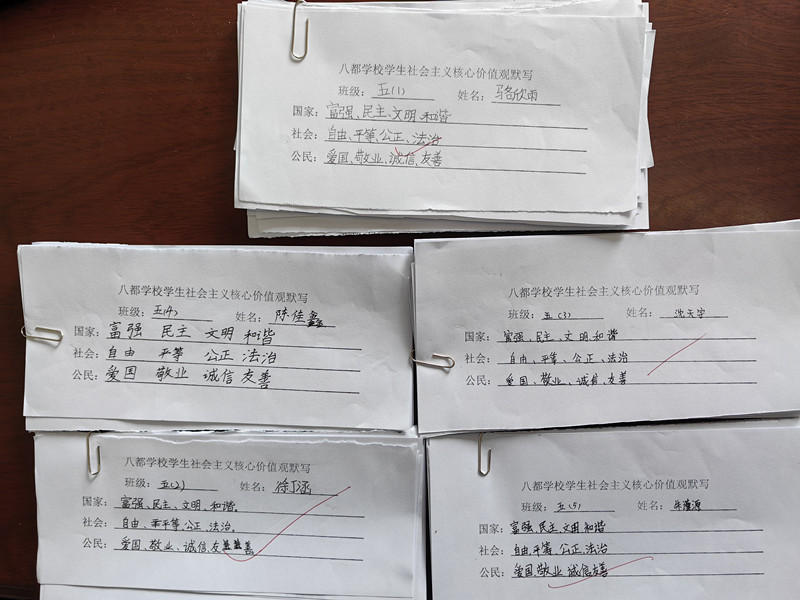 八都学校学生社会主义核心价值观默写
班级：五(1) 姓名：骆欣雨
国家：富强、民主、文明、和谐
社会：自由、平等、公正、法治
公民：爱国、敬业、诚信、友善
八都学校学生社会主义核心价值观默写
班级：五(4) 姓名：陈佳鑫
国家：富强 民主 文明 和谐
社会：自由 平等 公正 法治
公民：爱国 敬业 诚信 友善
八都学校学生社会主义核心价值观默写
班级：五(3) 姓名：沈天宇
国家：富强、民主、文明、和谐
社会：自由、平等、公正、法治
公民：爱国、敬业、诚信、友善
八都学校学生社会主义核心价值观默写
班级：五(2) 姓名：徐丁涵
国家：富强、民主、文明、和谐。
社会：自由、平等、公正、法治。
公民：爱国、敬业、诚信、友善
八都学校学生社会主义核心价值观默写
班级：五(5) 姓名：
国家：富强、民主、文明、和谐
社会：自由、平等、公正、法治
公民：爱国、敬业、诚信、友善